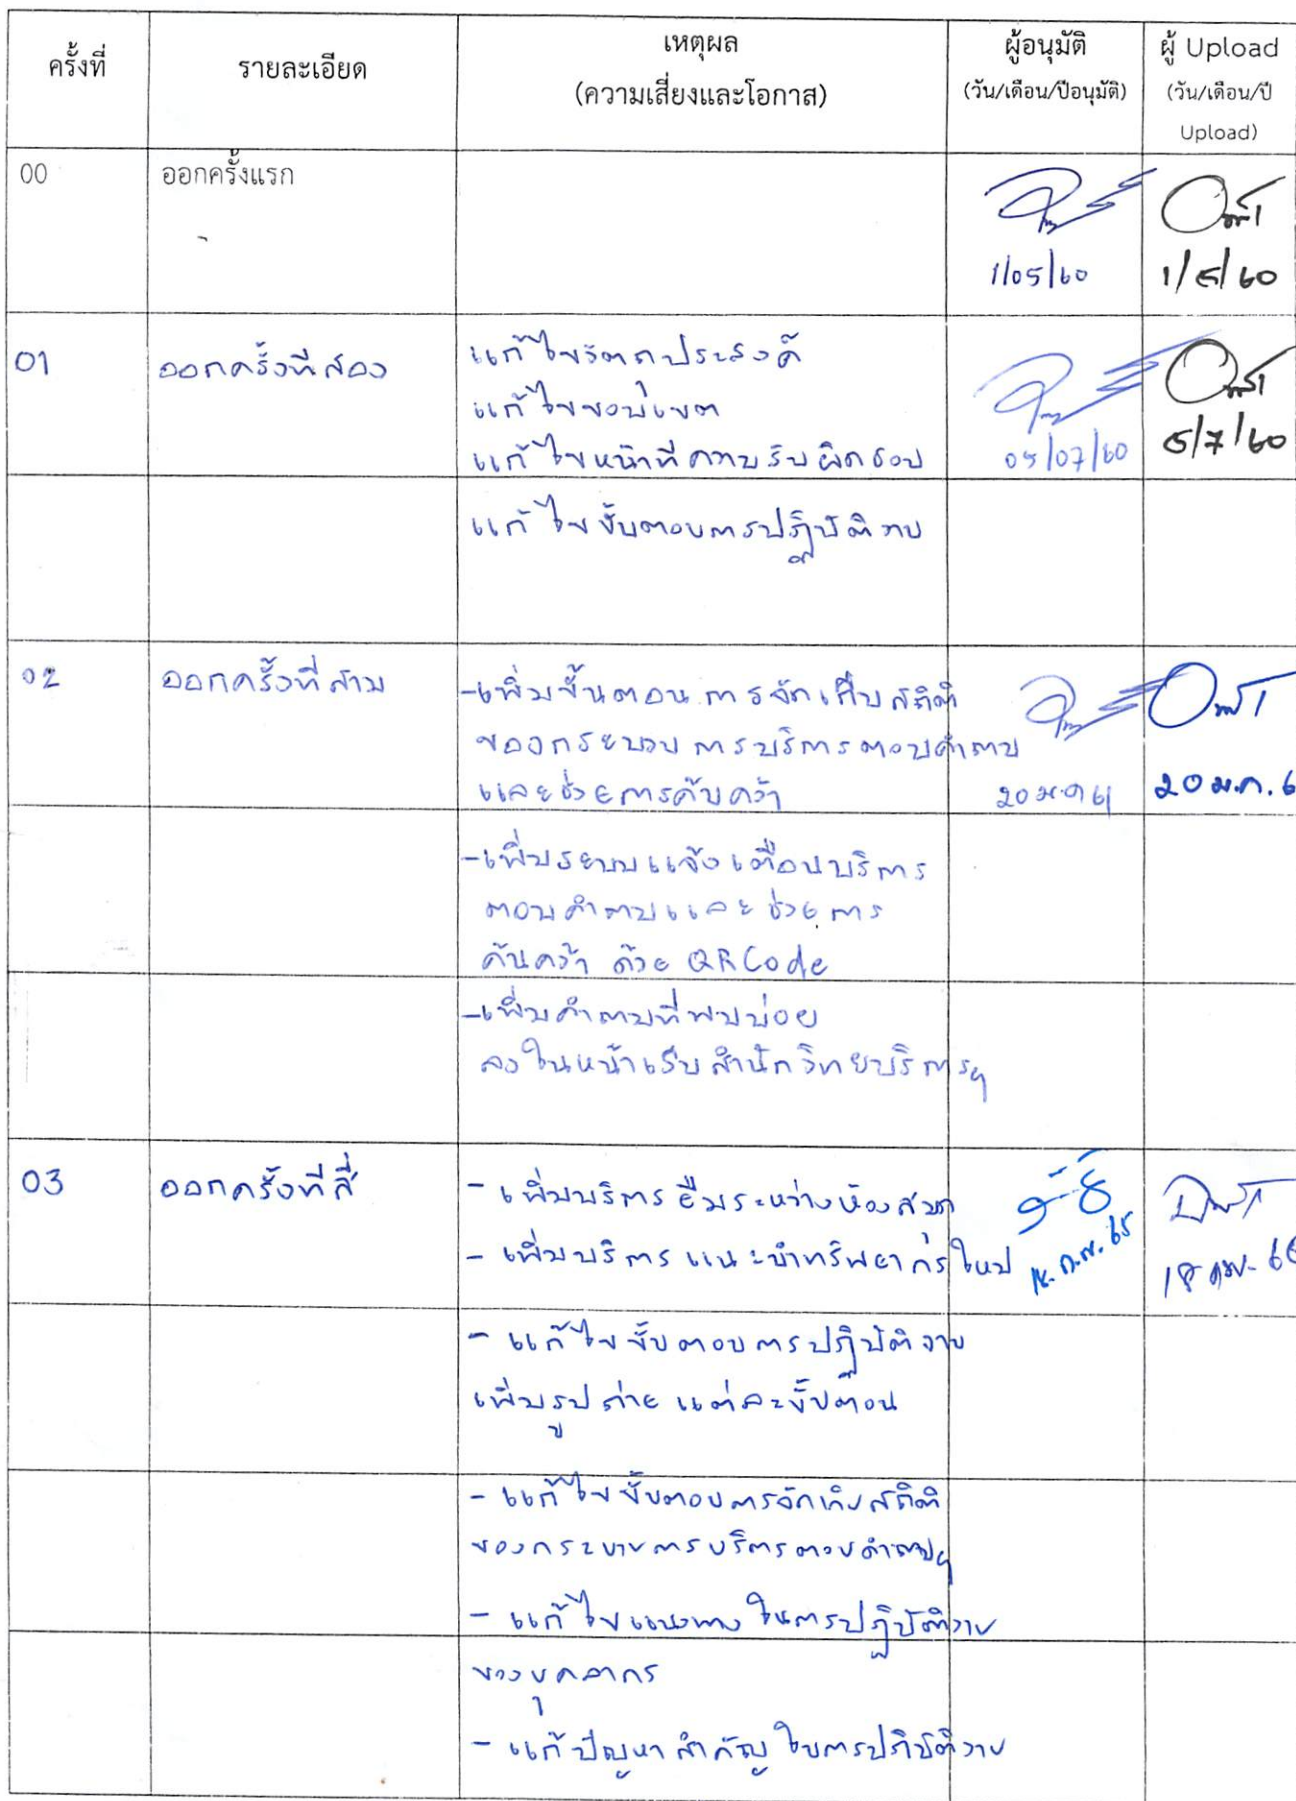 ครั้งที่
รายละเอียด
เหตุผล
(ความเสี่ยงและโอกาส)
ผู้อนุมัติ
(วัน/เดือน/ปีอนุมัติ)
ผู้ Upload
(วัน/เดือน/ปี
Upload)
00
ออกครั้งแรก
1/05/60
1/5/60
01
ออกครั้งที่สอง
แก้ไขวัตถุประสงค์
แก้ไขขอบเขต
แก้ไขหน้าที่ความรับผิดชอบ
05/07/60
5/7/60
แก้ไขขั้นตอนการปฏิบัติงาน
02
ออกครั้งที่สาม
-เพิ่มขั้นตอนการจัดเก็บสถิติ
ของกระบวนการบริการตอบคำถาม
และช่วยการค้นคว้า
20 ม.ค 61
20 ม.ค. 6
-เพิ่มระบบแจ้งเตือนบริการ
ตอบคำถามและช่วยการ
ค้นคว้า ด้วย QR Code
-เพิ่มคำถามที่พบบ่อย
ลงในหน้าเว็บสำนักวิทยบริการฯ
03
ออกครั้งที่สี่
- เพิ่มบริการยืมระหว่างห้องสมุด
- เพิ่มบริการแนะนำทรัพยากรใหม่
ก.พ. 65
- แก้ไขขั้นตอนการปฏิบัติงาน
เพิ่มรูปถ่ายแต่ละขั้นตอน
- แก้ไขขั้นตอนการจัดเก็บสถิติ
ของกระบวนการบริการตอบคำถามฯ
- แก้ไขแนวทางในการปฏิบัติงาน
ของบุคลากร
- แก้ปัญหาสำคัญในการปฏิบัติงาน